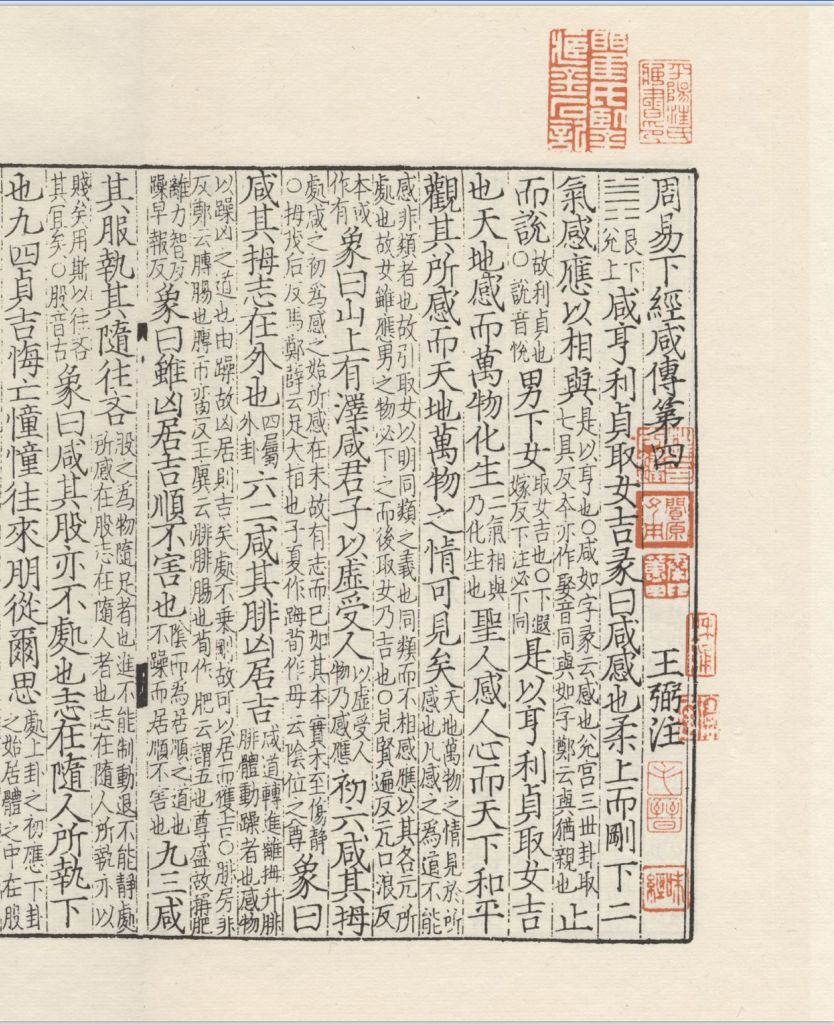 周易下經咸傳第四 王弼注
䷞艮下兊上咸亨利貞取女吉彖曰咸感也柔上而剛下二
氣感應以相與是以亨也○咸如字彖云感也兊宫三世卦取七具反本亦作娶音同與如字鄭云與猶親也止
而說故利貞也○說音悅男下女取女吉也○下遐嫁反下注必下同是以亨利貞取女吉
也天地感而萬物化生二氣相與乃化生也聖人感人心而天下和平
觀其所感而天地萬物之情可見矣天地萬物之情見於所感也凡感之為道不能
感非類者也故引取女以明同類之義也同類而不相感應以其各亢所處也故女雖應男之物必下之而後取女乃吉也○見賢遍反亢口浪反
本或作有象曰山上有澤咸君子以虛受人以虛受人物乃感應初六咸其拇
處咸之初爲感之始所感在末故有志而已如其本實未至傷靜○拇茂后反馬鄭薛云足大指也子夏作䠂荀作母云陰位之尊象曰
咸其拇志在外也四屬外卦六二咸其腓凶居吉咸道轉進離拇升腓腓體動躁者也感物
以躁凶之道也由躁故凶居則吉矣處不乘剛故可以居而獲吉○腓房非反鄭云膞腸也膞市臠反王廙云腓腓腸也荀作肥云謂五也尊盛故稱肥
離力智反躁早報反象曰雖凶居吉順不害也陰而為居順之道也不躁而居順不害也九三咸
其股執其隨往吝股之為物隨足者也進不能制動退不能靜處所感在股志在隨人者也志在隨人所執亦以
賤矣用斯以往吝其宜矣○股音古象曰咸其股亦不處也志在隨人所執下
也九四貞吉悔亡憧憧往來朋從爾思處上卦之初應下卦之始居體之中在股